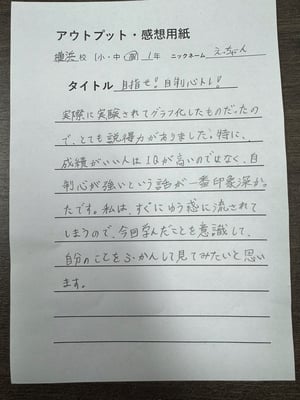 アウトプット・感想用紙
横浜 校 (小・中・高) 1年 ニックネーム えーちゃん
タイトル 目指せ!自制心トレ!
実際に実験されてグラフ化したものだったの
で、とても説得力がありました。特に、
成績がいい人はIQが高いのではなく、自
制心が強いという話が一番印象深かっ
たです。私は、すぐにゆう惑に流されて
しまうので、今回学んだことを意識して、
自分のことをふかんして見てみたいと思い
ます。